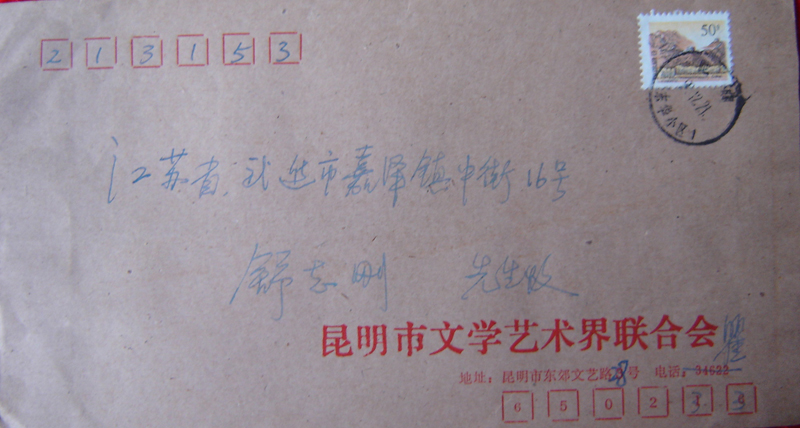 213153
50分
江苏省武进市嘉泽镇中街16号
舒志刚 先生收
昆明市文学艺术界联合会 瞿
地址:昆明市东郊文艺路28号 电话:34632
650233